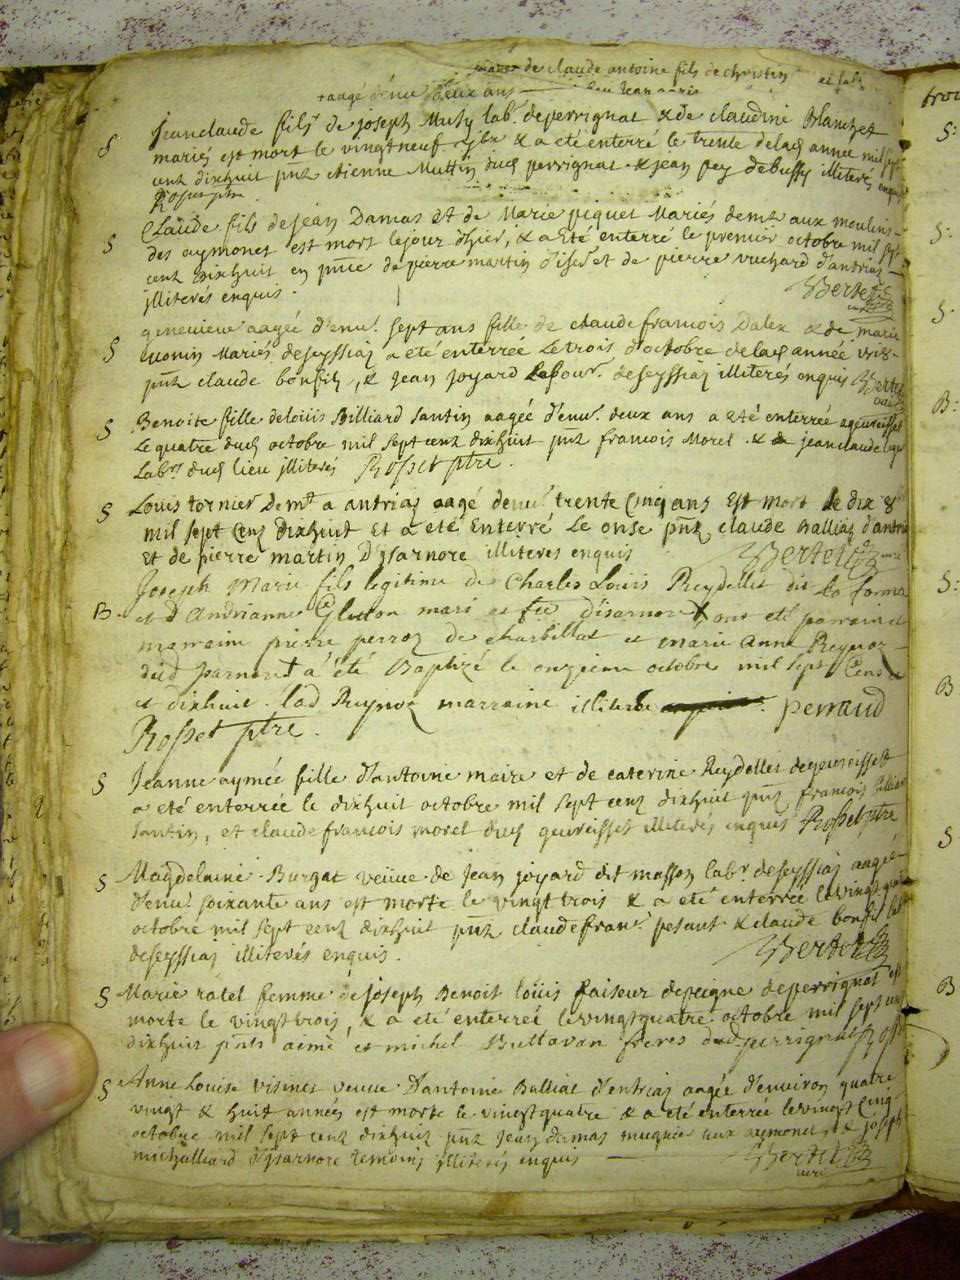 de claude antoine fils de christin
+ aagé d'env. deux ans
§ jeanclaude fils de joseph Musy lab. deperrignat & de claudine Blanchet
mariés est mort le vingtneuf 7bre & a eté enterré le trente delad année mil sept
cenz dixhuit pnz etienne Muttin dud perrignat & jean pey debussy illiterés enquis
Rosset ptre
§ Claude fils dejean Damas et de Marie piquet Mariés demt aux moulins
des aymonet est mort lejour d'hier, & a eté enterré le premier octobre mil sept
cenz dixhuit en pnce de pierre martin d'iser et de pierre vuchard d'antrias
illiterés enquis. Bertet
§ genevieve aagée d'env. sept ans fille de claudefrancois Dalex & de marie
Monin Mariés deseyssiaz a eté enterrée Letrois d'octobre delad année
pnz claude bonfils, & jean joyard Labour. deseyssiaz illiterés enquis Bertet
§ Benoite fille delouis Billiard Santin aagée d'env. deux ans a eté enterrée
Le quatre dud octobre mil sept cenz dixhuit pnz francois Morel & jeanclaude
Labrs dud lieu illiterés Rosset ptre.
§ Louis tornier demt a antrias aagé denv. trente Cinq ans Est mort le dix 8
mil sept Cenz Dixhuit Et a eté Enterré Le onse pnz claude Balliaz d'antrias
Et de pierre martin D'ysarnore illiteres enquis Bertet
B. Joseph Marie fils legitime de Charles Louis Reydellet dit la forme
et d'Andrianne Gluton mari et fee disarnore X ont eté parrain et
marraine pierre perroz de charbillat et marie Anne Reynoz
dud Isarnore + a eté Baptizé le onzieme octobre mil sept Cens
et dixhuit. lad Reynoz marraine illiterée perraud
Rosset ptre.
§ Jeanne aymée fille d'antoine maire et de caterine Reydellet degeureisset
a eté enterrée le dixhuit octobre mil sept cenz dixhuit pnz francois billiard
santin, et claudefrancois morel dud geureisset illiterés enquis Rosset ptre
§ Magdelaine Burgat veuve de jean joyard dit masson labr deseyssias aagée
d'env. soixante ans est morte le vingt trois & a eté enterrée le vingtquatre
octobre mil sept cenz dixhuit pnz claudefran. pesant & claude bonfil labr
deseyssiaz illiterés enquis. Bertet
§ Marie ratel femme de joseph Benoit loüis faiseur depeigne deperrignat est
morte le vingttrois, & a eté enterrée levingtquatre octobre mil sept cenz
dixhuit pnts aimé et michel Buttavan freres dud perrignat Rosset
§ Anne Louise vismes veuve d'antoine Balliat d'entrias aagée d'environ quatre
vingt & huit années est morte le vingtquatre & a eté enterrée levingt Cinq
octobre mil sept cenz dixhuit pnz jean damas mugnier aux aymonets & joseph
michalliard d'ysarnore temoins illiterés enquis Bertet